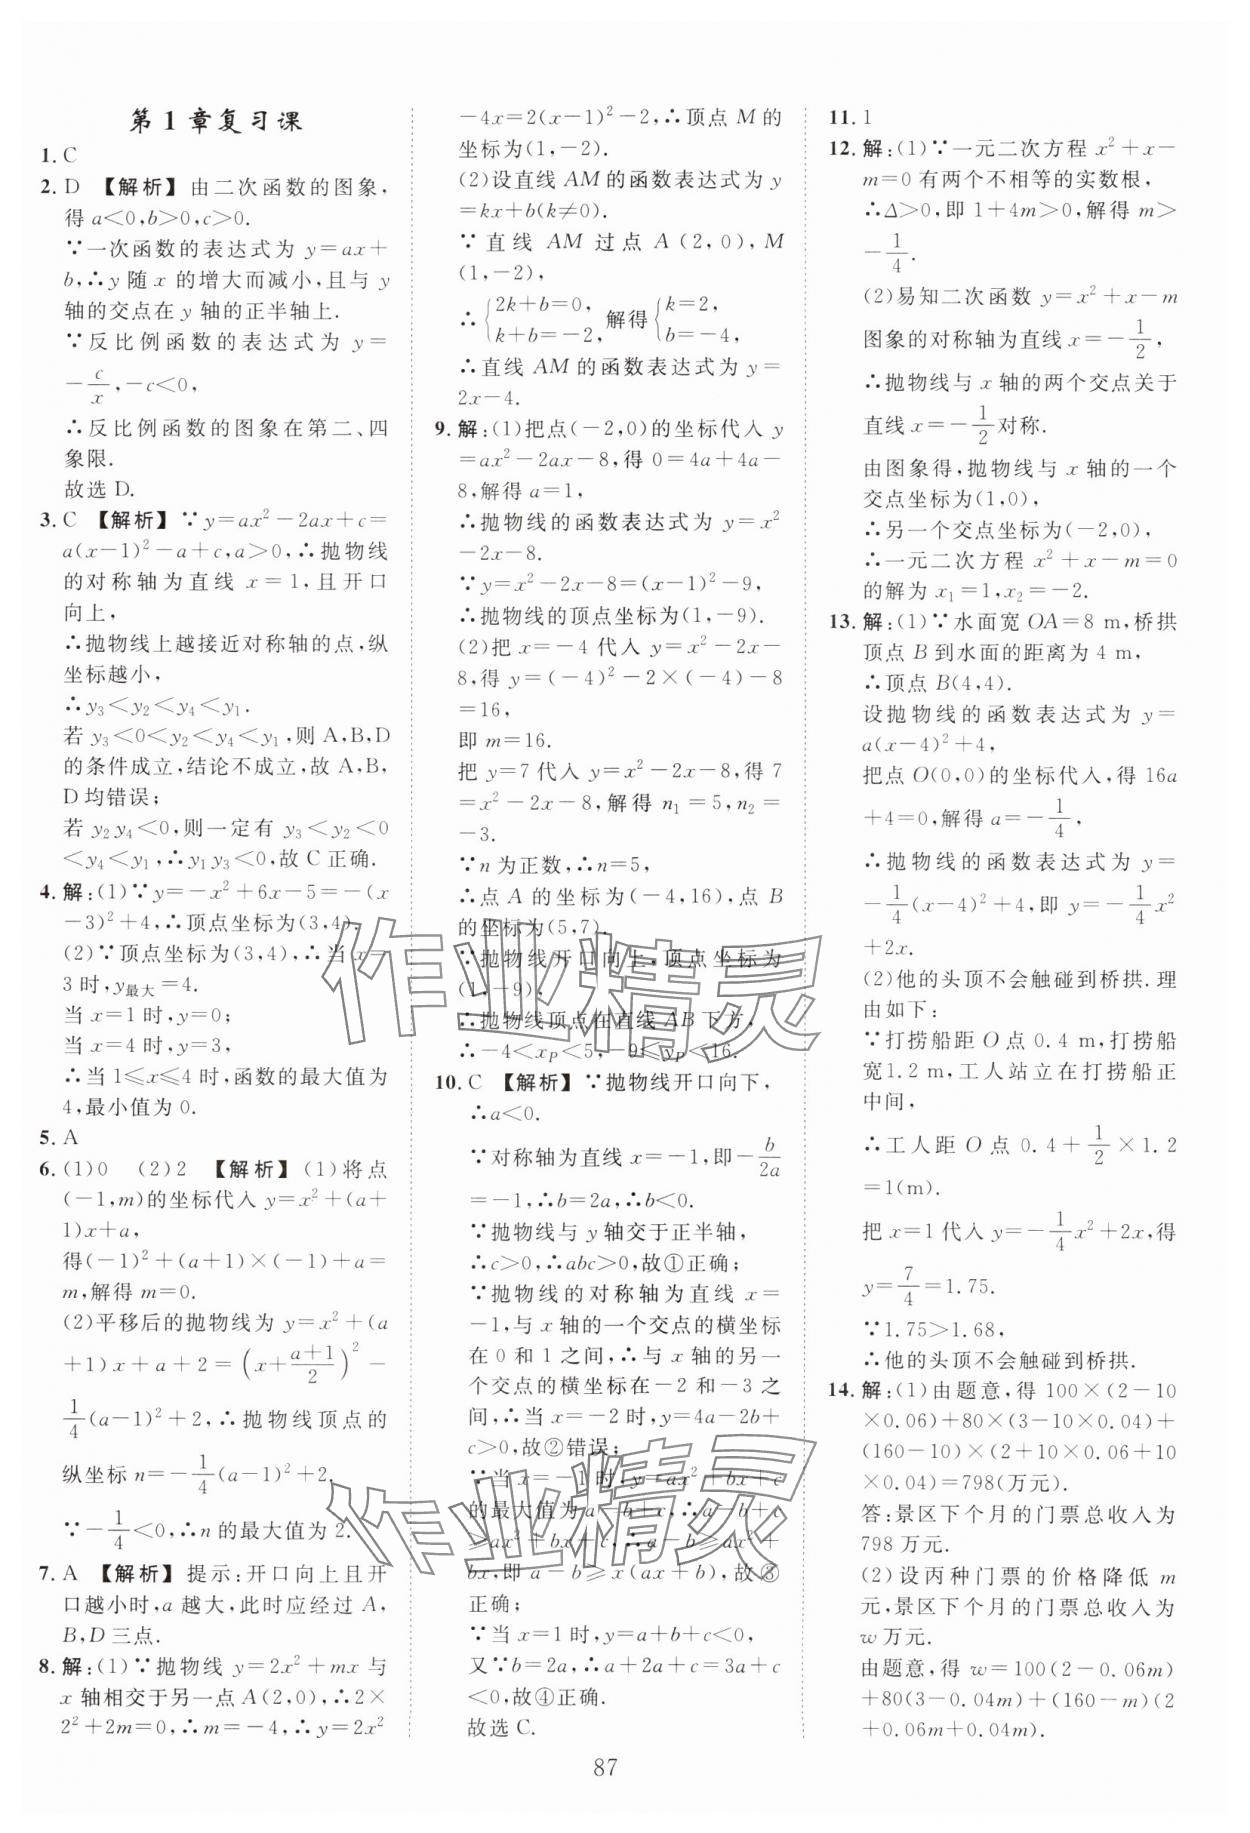 第1章复习课
1. C
2. D 【解析】由二次函数的图象,
得 a<0,b>0,c>0.
∵一次函数的表达式为 y=ax+
b,∴y 随 x 的增大而减小,且与 y
轴的交点在 y 轴的正半轴上.
∵反比例函数的表达式为 y=
-c/x,-c<0,
∴反比例函数的图象在第二、四
象限.
故选 D.
3. C 【解析】∵y=ax²-2ax+c=
a(x-1)²-a+c,a>0,∴抛物线
的对称轴为直线 x=1,且开口
向上,
∴抛物线上越接近对称轴的点,纵
坐标越小,
∴y₃<y₂<y₄<y₁.
若 y₃<0<y₂<y₄<y₁,则 A,B,D
的条件成立,结论不成立,故 A,B,
D 均错误;
若 y₂y₄<0,则一定有 y₃<y₂<0
<y₄<y₁,∴y₁y₃<0,故 C 正确.
4. 解:(1)∵y=-x²+6x-5=-(x
-3)²+4,∴顶点坐标为(3,4).
(2)∵顶点坐标为(3,4),∴当 x=
3 时,y最大=4.
当 x=1 时,y=0;
当 x=4 时,y=3,
∴当 1≤x≤4 时,函数的最大值为
4,最小值为 0.
5. A
6. (1)0 (2)2 【解析】(1)将点
(-1,m)的坐标代入 y=x²+(a+
1)x+a,
得(-1)²+(a+1)×(-1)+a=
m,解得 m=0.
(2)平移后的抛物线为 y=x²+(a
+1)x+a+2=(x+(a+1)/2)²-
1/4(a-1)²+2,∴抛物线顶点的
纵坐标 n=-1/4(a-1)²+2.
∵-1/4<0,∴n 的最大值为 2.
7. A 【解析】提示:开口向上且开
口越小时,a 越大,此时应经过 A,
B,D 三点.
8. 解:(1)∵抛物线 y=2x²+mx 与
x 轴相交于另一点 A(2,0),∴2×
2²+2m=0,∴m=-4,∴y=2x²
-4x=2(x-1)²-2,∴顶点 M 的
坐标为(1,-2).
(2)设直线 AM 的函数表达式为 y
=kx+b(k≠0).
∵直线 AM 过点 A(2,0),M
(1,-2),
∴{2k+b=0, k+b=-2, 解得{k=2, b=-4,
∴直线 AM 的函数表达式为 y=
2x-4.
9. 解:(1)把点(-2,0)的坐标代入 y
=ax²-2ax-8,得 0=4a+4a-
8,解得 a=1,
∴抛物线的函数表达式为 y=x²
-2x-8.
∵y=x²-2x-8=(x-1)²-9,
∴抛物线的顶点坐标为(1,-9).
(2)把 x=-4 代入 y=x²-2x-
8,得 y=(-4)²-2×(-4)-8
=16,
即 m=16.
把 y=7 代入 y=x²-2x-8,得 7
=x²-2x-8,解得 n₁=5,n₂=
-3.
∵n 为正数,∴n=5,
∴点 A 的坐标为(-4,16),点 B
的坐标为(5,7).
∵抛物线开口向上,顶点坐标为
(1,-9),
∴抛物线顶点在直线 AB 下方,
∴-4<xP<5,-9≤yP<16.
10. C 【解析】∵抛物线开口向下,
∴a<0.
∵对称轴为直线 x=-1,即-b/2a
=-1,∴b=2a,∴b<0.
∵抛物线与 y 轴交于正半轴,
∴c>0,∴abc>0,故①正确;
∵抛物线的对称轴为直线 x=
-1,与 x 轴的一个交点的横坐标
在 0 和 1 之间,∴与 x 轴的另一
个交点的横坐标在-2 和-3 之
间,∴当 x=-2 时,y=4a-2b+
c>0,故②错误;
∵当 x=-1 时,y=ax²+bx+c
的最大值为 a-b+c,∴a-b+c
≥ax²+bx+c,∴a-b≥ax²+
bx,即 a-b≥x(ax+b),故③
正确;
∵当 x=1 时,y=a+b+c<0,
又∵b=2a,∴a+2a+c=3a+c
<0,故④正确.
故选 C.
11. 1
12. 解:(1)∵一元二次方程 x²+x-
m=0 有两个不相等的实数根,
∴Δ>0,即 1+4m>0,解得 m>
-1/4.
(2)易知二次函数 y=x²+x-m
图象的对称轴为直线 x=-1/2,
∴抛物线与 x 轴的两个交点关于
直线 x=-1/2对称.
由图象得,抛物线与 x 轴的一个
交点坐标为(1,0),
∴另一个交点坐标为(-2,0),
∴一元二次方程 x²+x-m=0
的解为 x₁=1,x₂=-2.
13. 解:(1)∵水面宽 OA=8 m,桥拱
顶点 B 到水面的距离为 4 m,
∴顶点 B(4,4).
设抛物线的函数表达式为 y=
a(x-4)²+4,
把点 O(0,0)的坐标代入,得 16a
+4=0,解得 a=-1/4,
∴抛物线的函数表达式为 y=
-1/4(x-4)²+4,即 y=-1/4x²
+2x.
(2)他的头顶不会触碰到桥拱.理
由如下:
∵打捞船距 O 点 0.4 m,打捞船
宽1.2 m,工人站立在打捞船正
中间,
∴工人距 O 点 0.4+1/2×1.2
=1(m).
把 x=1 代入 y=-1/4x²+2x,得
y=7/4=1.75.
∵1.75>1.68,
∴他的头顶不会触碰到桥拱.
14. 解:(1)由题意,得 100×(2-10
×0.06)+80×(3-10×0.04)+
(160-10)×(2+10×0.06+10
×0.04)=798(万元).
答:景区下个月的门票总收入为
798 万元.
(2)设丙种门票的价格降低 m
元,景区下个月的门票总收入为
w 万元.
由题意,得 w=100(2-0.06m)
+80(3-0.04m)+(160-m)(2
+0.06m+0.04m).
87
作业精灵
作业精灵